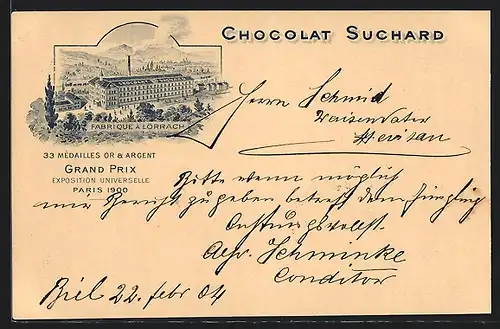 CHOCOLAT SUCHARD
FABRIQUE À LÖRRACH
33 MÉDAILLES OR & ARGENT
GRAND PRIX
EXPOSITION UNIVERSELLE
PARIS 1900
Herrn Schmid
Waisenvater
Bitte wenn möglich
mir Bericht zu geben betreff dem Jüngling
Achtungsvollst.
Schminke
Conditor
Biel 22. Febr 04